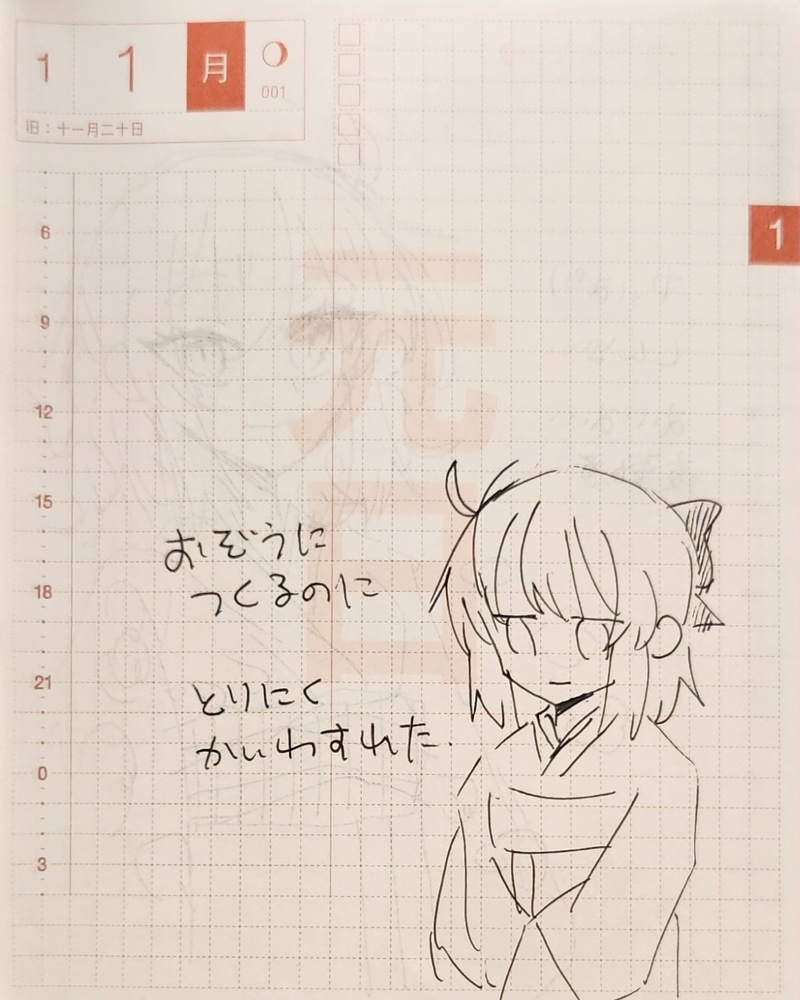 1 1 月
001
旧：十一月二十日
1
6
9
12
15
18
21
0
3
元
日
おぞうに
つくるのに
とりにく
かいわすれた.